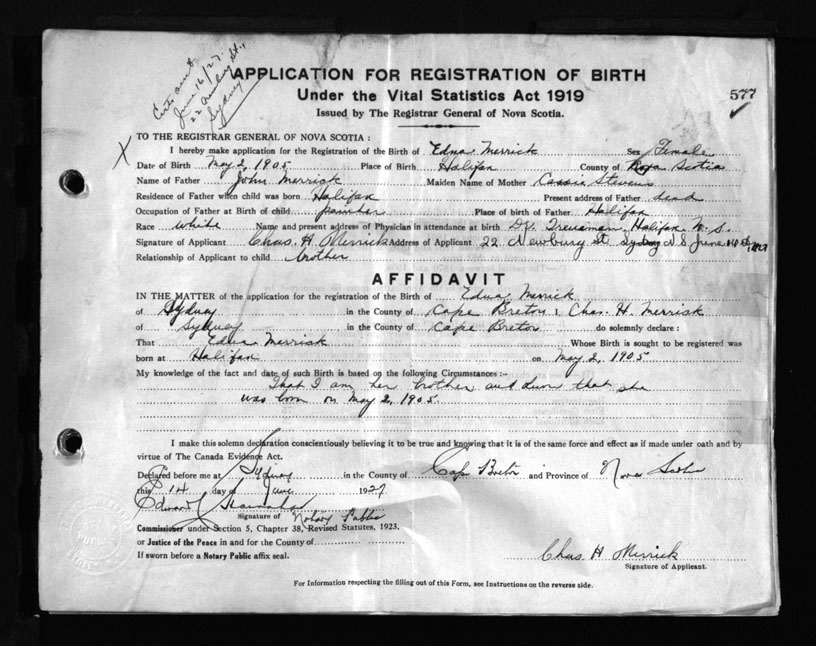 June 16/27
Sydney
APPLICATION FOR REGISTRATION OF BIRTH
Under the Vital Statistics Act 1919
577
Issued by The Registrar General of Nova Scotia.
TO THE REGISTRAR GENERAL OF NOVA SCOTIA :
X
I hereby make application for the Registration of the Birth of Edna Merrick Sex Female
Date of Birth May 2, 1905 Place of Birth Halifax County of Nova Scotia
Name of Father John Merrick Maiden Name of Mother Cassie Stevens
Residence of Father when child was born Halifax Present address of Father dead
Occupation of Father at Birth of child painter Place of birth of Father Halifax
Race White Name and present address of Physician in attendance at birth Dr. Halifax N. S.
Signature of Applicant Chas. H Merrick Address of Applicant 22 Newbury St Sydney N S June 14
Relationship of Applicant to child brother
AFFIDAVIT
IN THE MATTER of the application for the registration of the Birth of Edna Merrick
of Sydney in the County of Cape Breton I Chas. H. Merrick
of Sydney in the County of Cape Breton do solemnly declare :
That Edna Merrick Whose Birth is sought to be registered was
born at Halifax on May 2, 1905
My knowledge of the fact and date of such Birth is based on the following Circumstances :-
That I am her brother and that she
was born on May 2, 1905.
I make this solemn declaration conscientiously believing it to be true and knowing that it is of the same force and effect as if made under oath and by
virtue of The Canada Evidence Act.
Declared before me at Sydney in the County of Cape Breton and Province of Nova Scotia
this 14 day of June 1927
Edward
Signature of Notary Public
Commissioner under Section 5, Chapter 38, Revised Statutes, 1923.
or Justice of the Peace in and for the County of
If sworn before a Notary Public affix seal.
Chas H Merrick
Signature of Applicant.
For Information respecting the filling out of this Form, see Instructions on the reverse side.